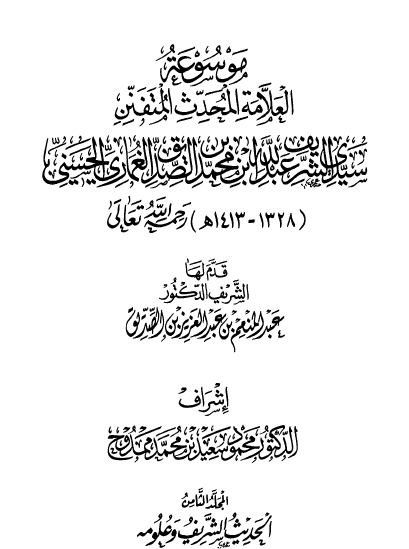 مَوْسُوْعَةُ
العَلَّامَةِ المُحَدِّثِ المُتَفَنِّنِ
سَيِّدِي الشَّرِيفِ عَبْدِ اللَّهِ ابْنِ مُحَمَّدِ بْنِ الصِّدِّيقِ الغُمَارِيِّ الحَسَنِيِّ
(١٣٢٨-١٤١٣هـ) رَحِمَهُ اللَّهُ تَعَالَى
قَدَّمَ لَهَا
الشَّرِيفُ الدُّكْتُورُ
عَبْدُ المُنْعِمِ بْنُ عَبْدِ العَزِيزِ بْنِ الصِّدِّيقِ
إِشْرَافُ
الدُّكْتُورِ مَحْمُود سَعِيد بْنِ مُحَمَّد مَمْدُوح
المُجَلَّدُ الثَّامِنُ
الحَدِيثُ الشَّرِيفُ وَعُلُومُه